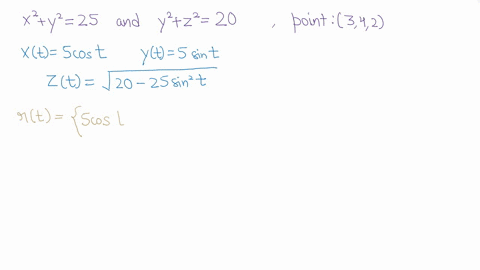 x²+y²=25 and y²+z²=20 , point:(3,4,2)
x(t)=5cos t y(t)=5 sin t
z(t)=√(20-25sin² t)
r(t)={5cos l